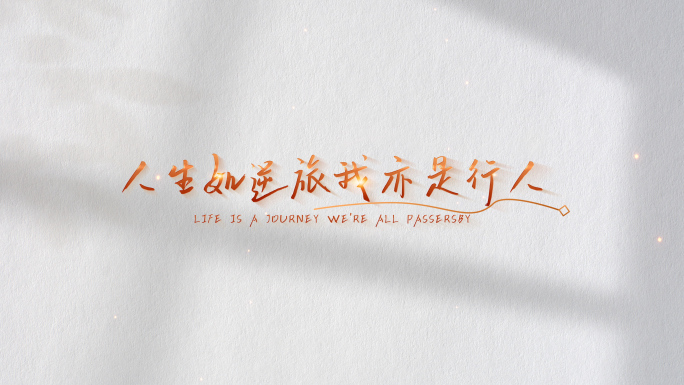 人生如逆旅我亦是行人
LIFE IS A JOURNEY WE'RE ALL PASSERSBY